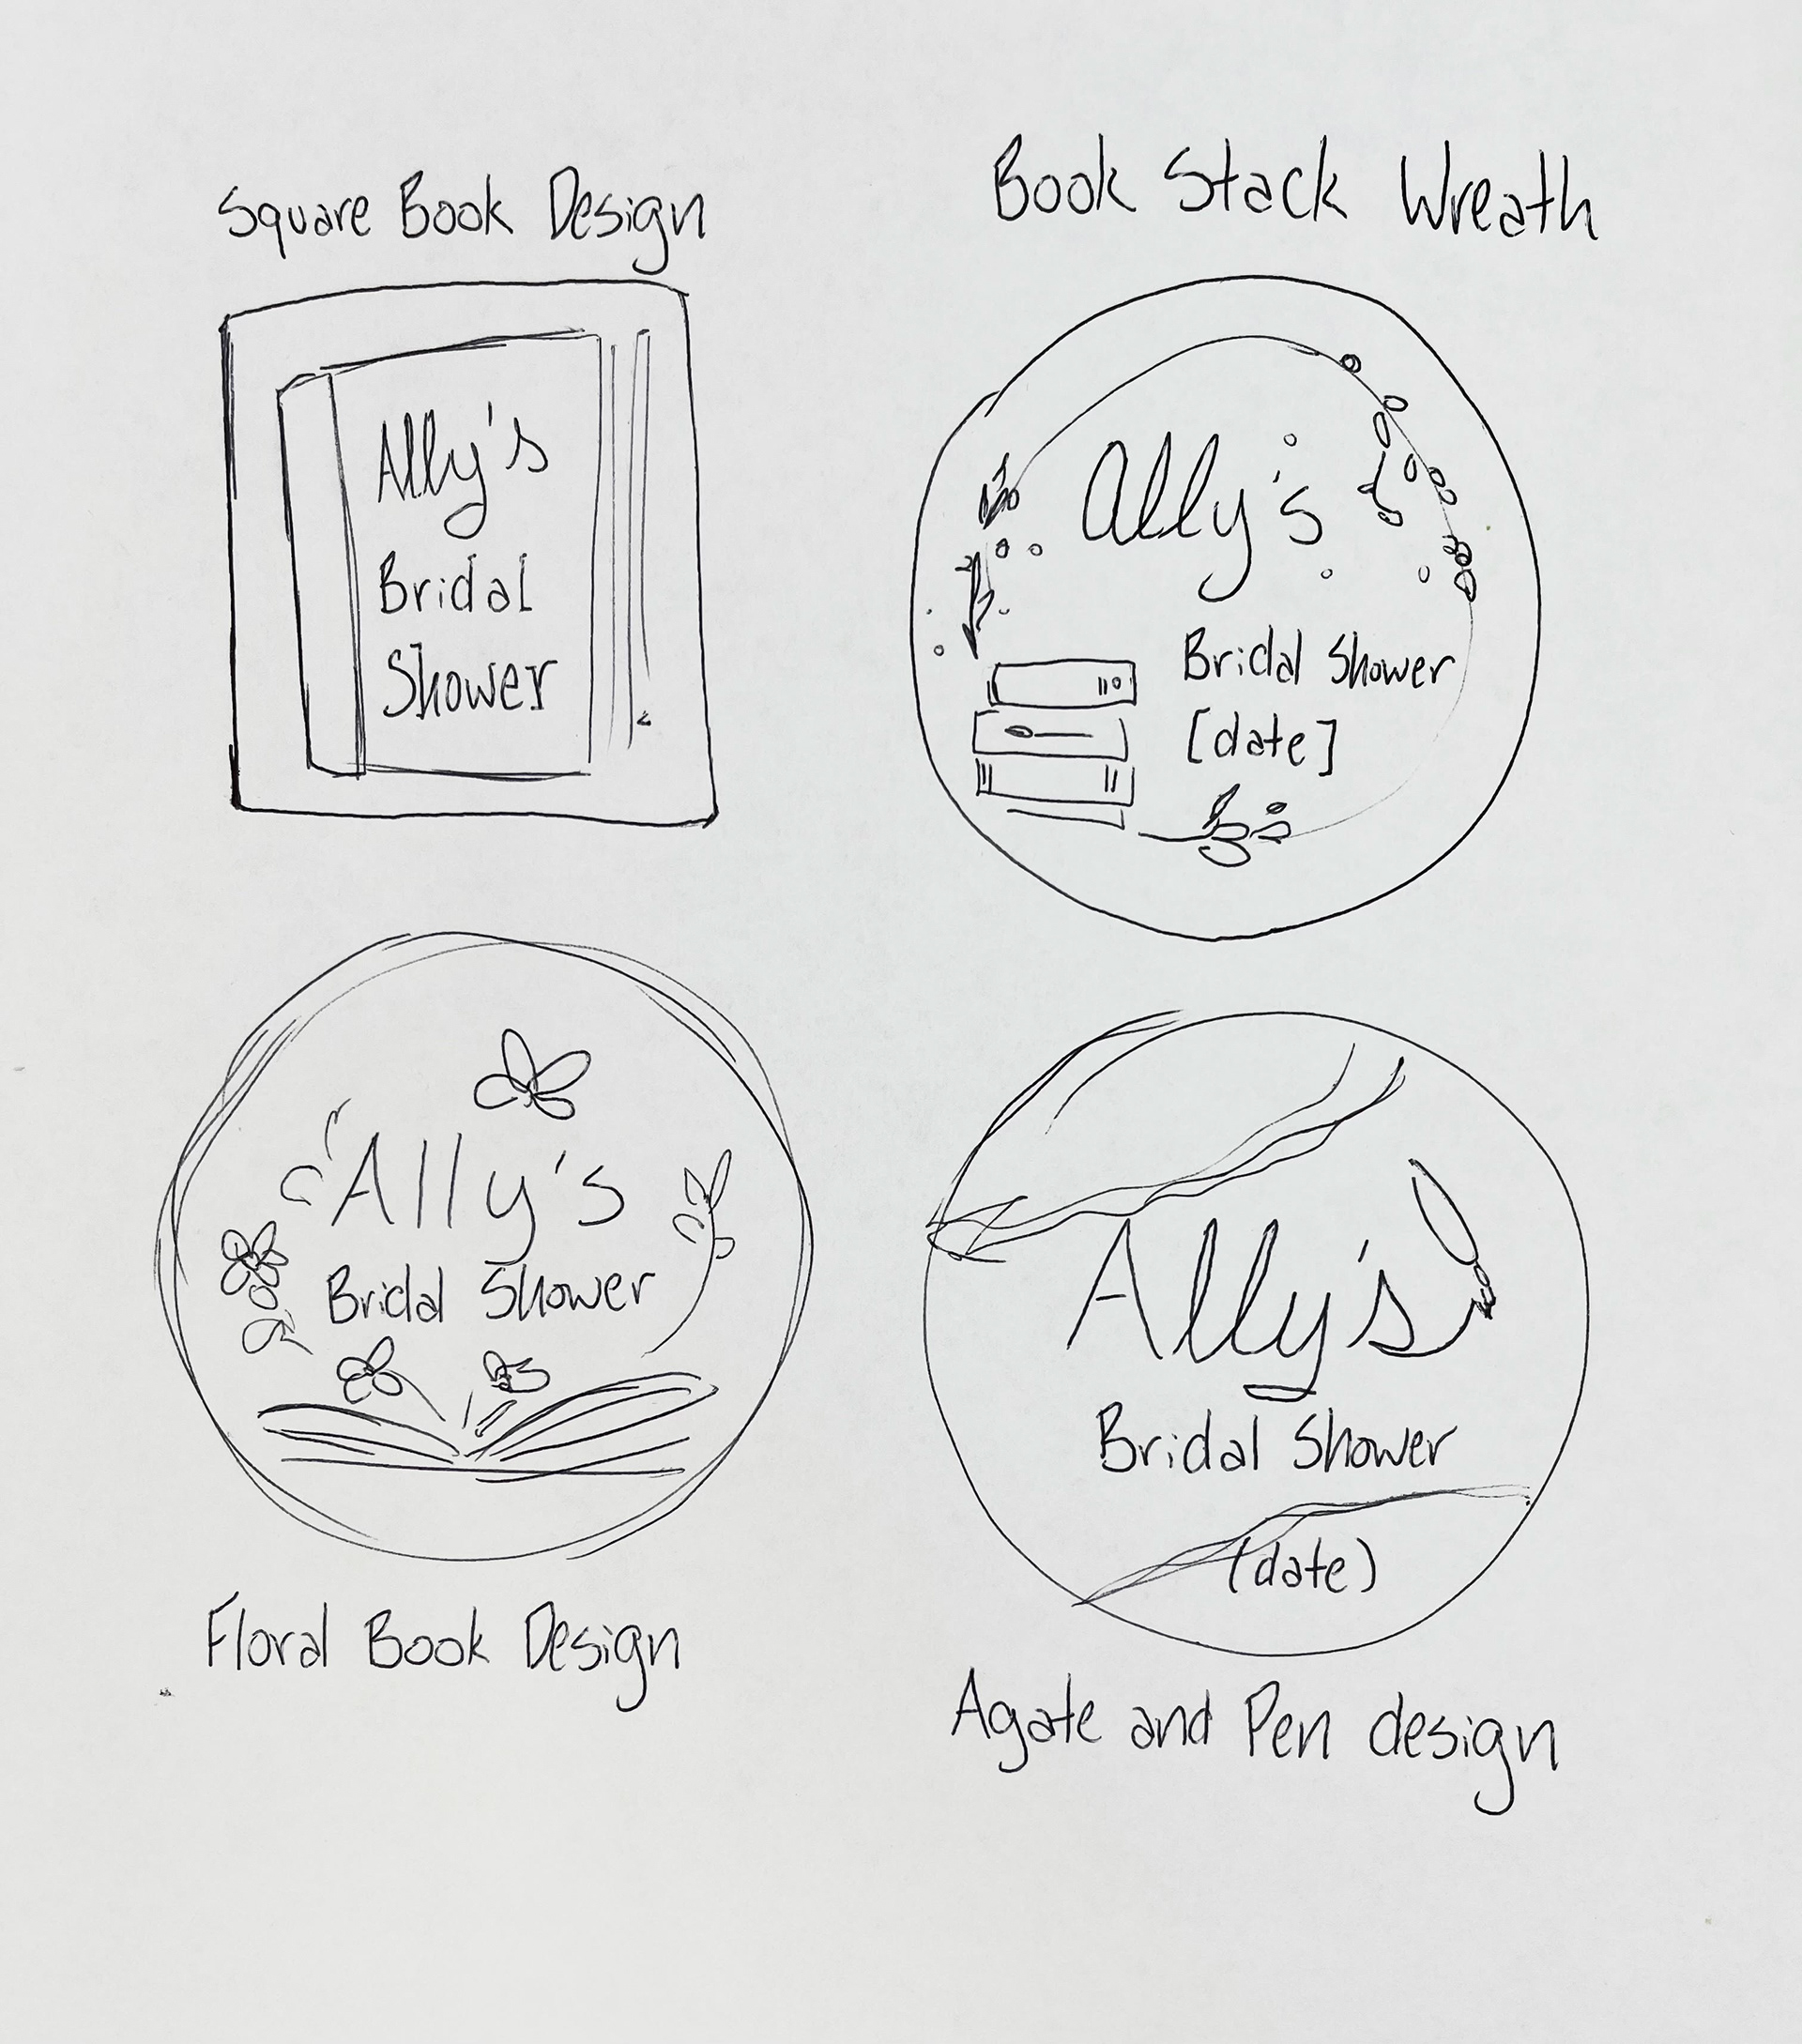 Square Book Design
Ally's
Bridal
Shower
Book Stack Wreath
Ally's
Bridal Shower
[date]
Ally's
Bridal Shower
Floral Book Design
Ally's
Bridal Shower
(date)
Agate and Pen design